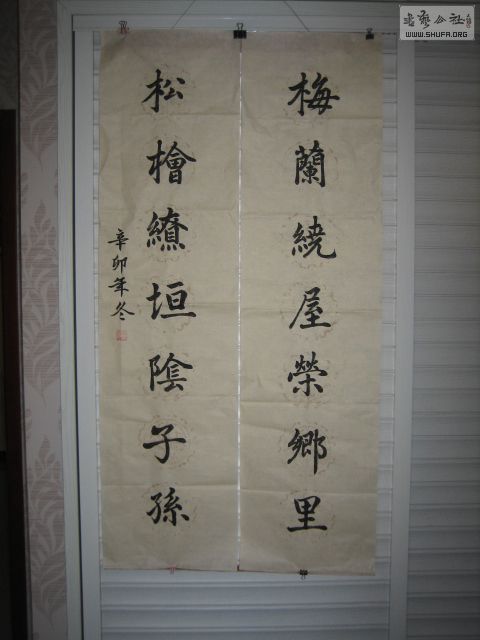 梅蘭繞屋榮鄉里
松檜繚垣陰子孫
辛卯年冬
書藝公社
WWW.SHUFA.ORG